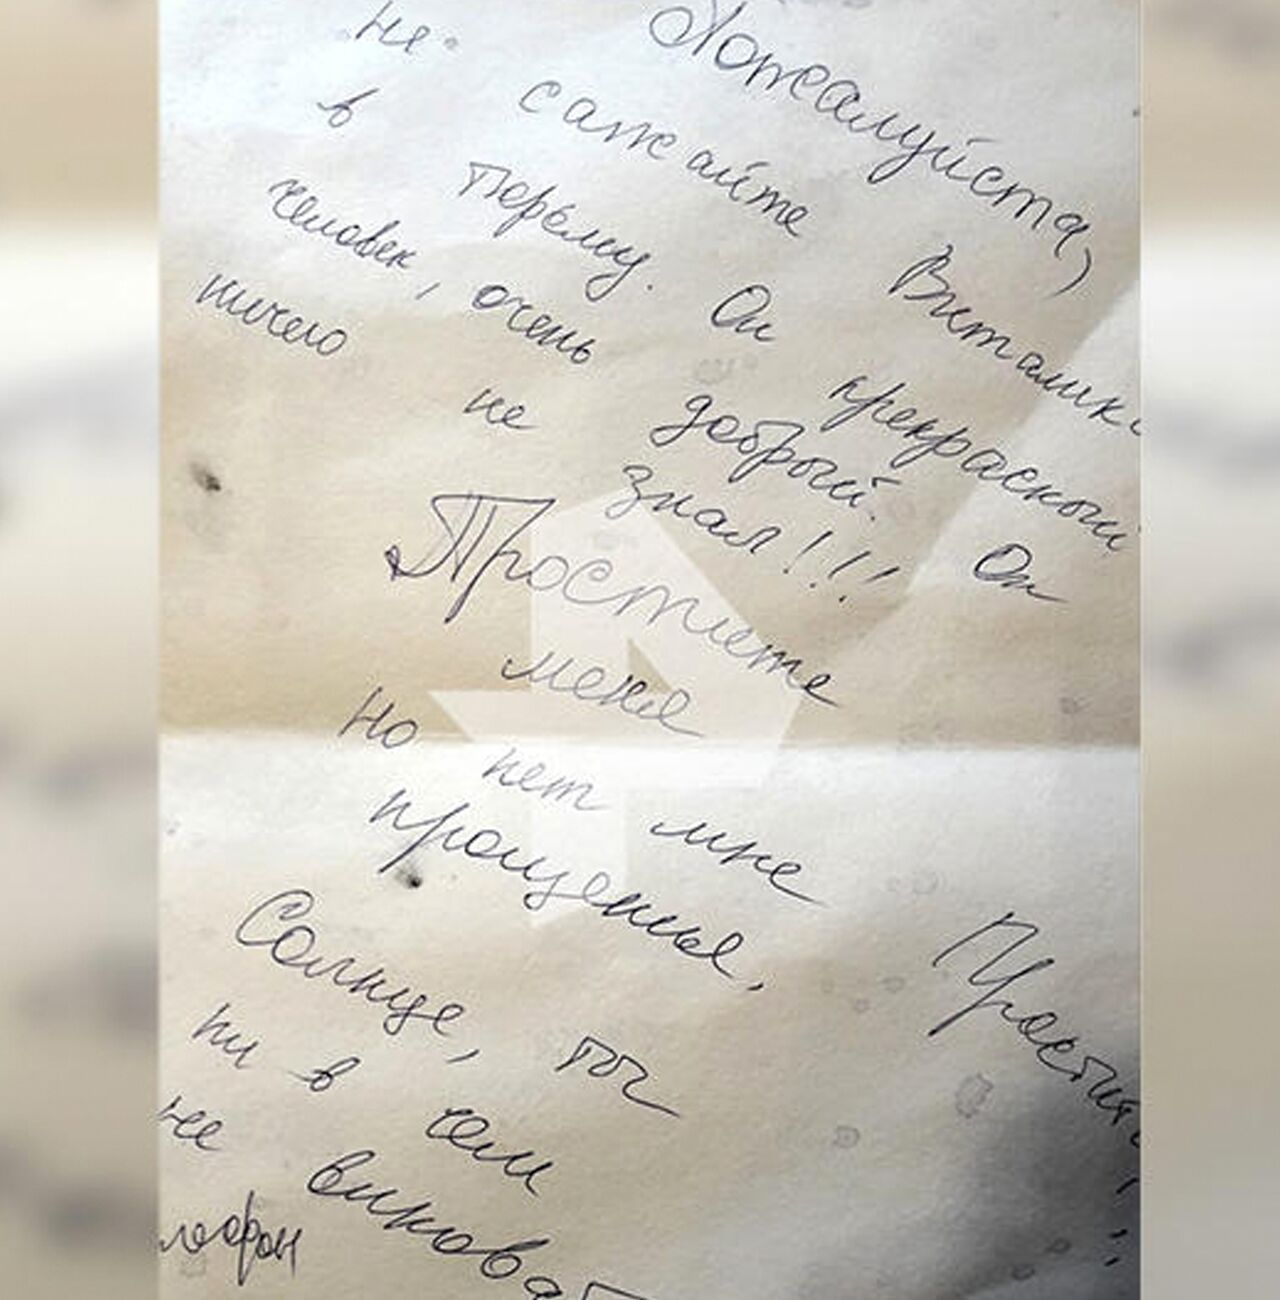 Пожалуйста,
не сажайте Виташк
в тюрьму. Он прекрасный
человек, очень добрый. Он
ничего не знал!!!
Простите
меня
Но нет мне
прощения,
Простите
Солнце, ты
ни в чем
не виноват